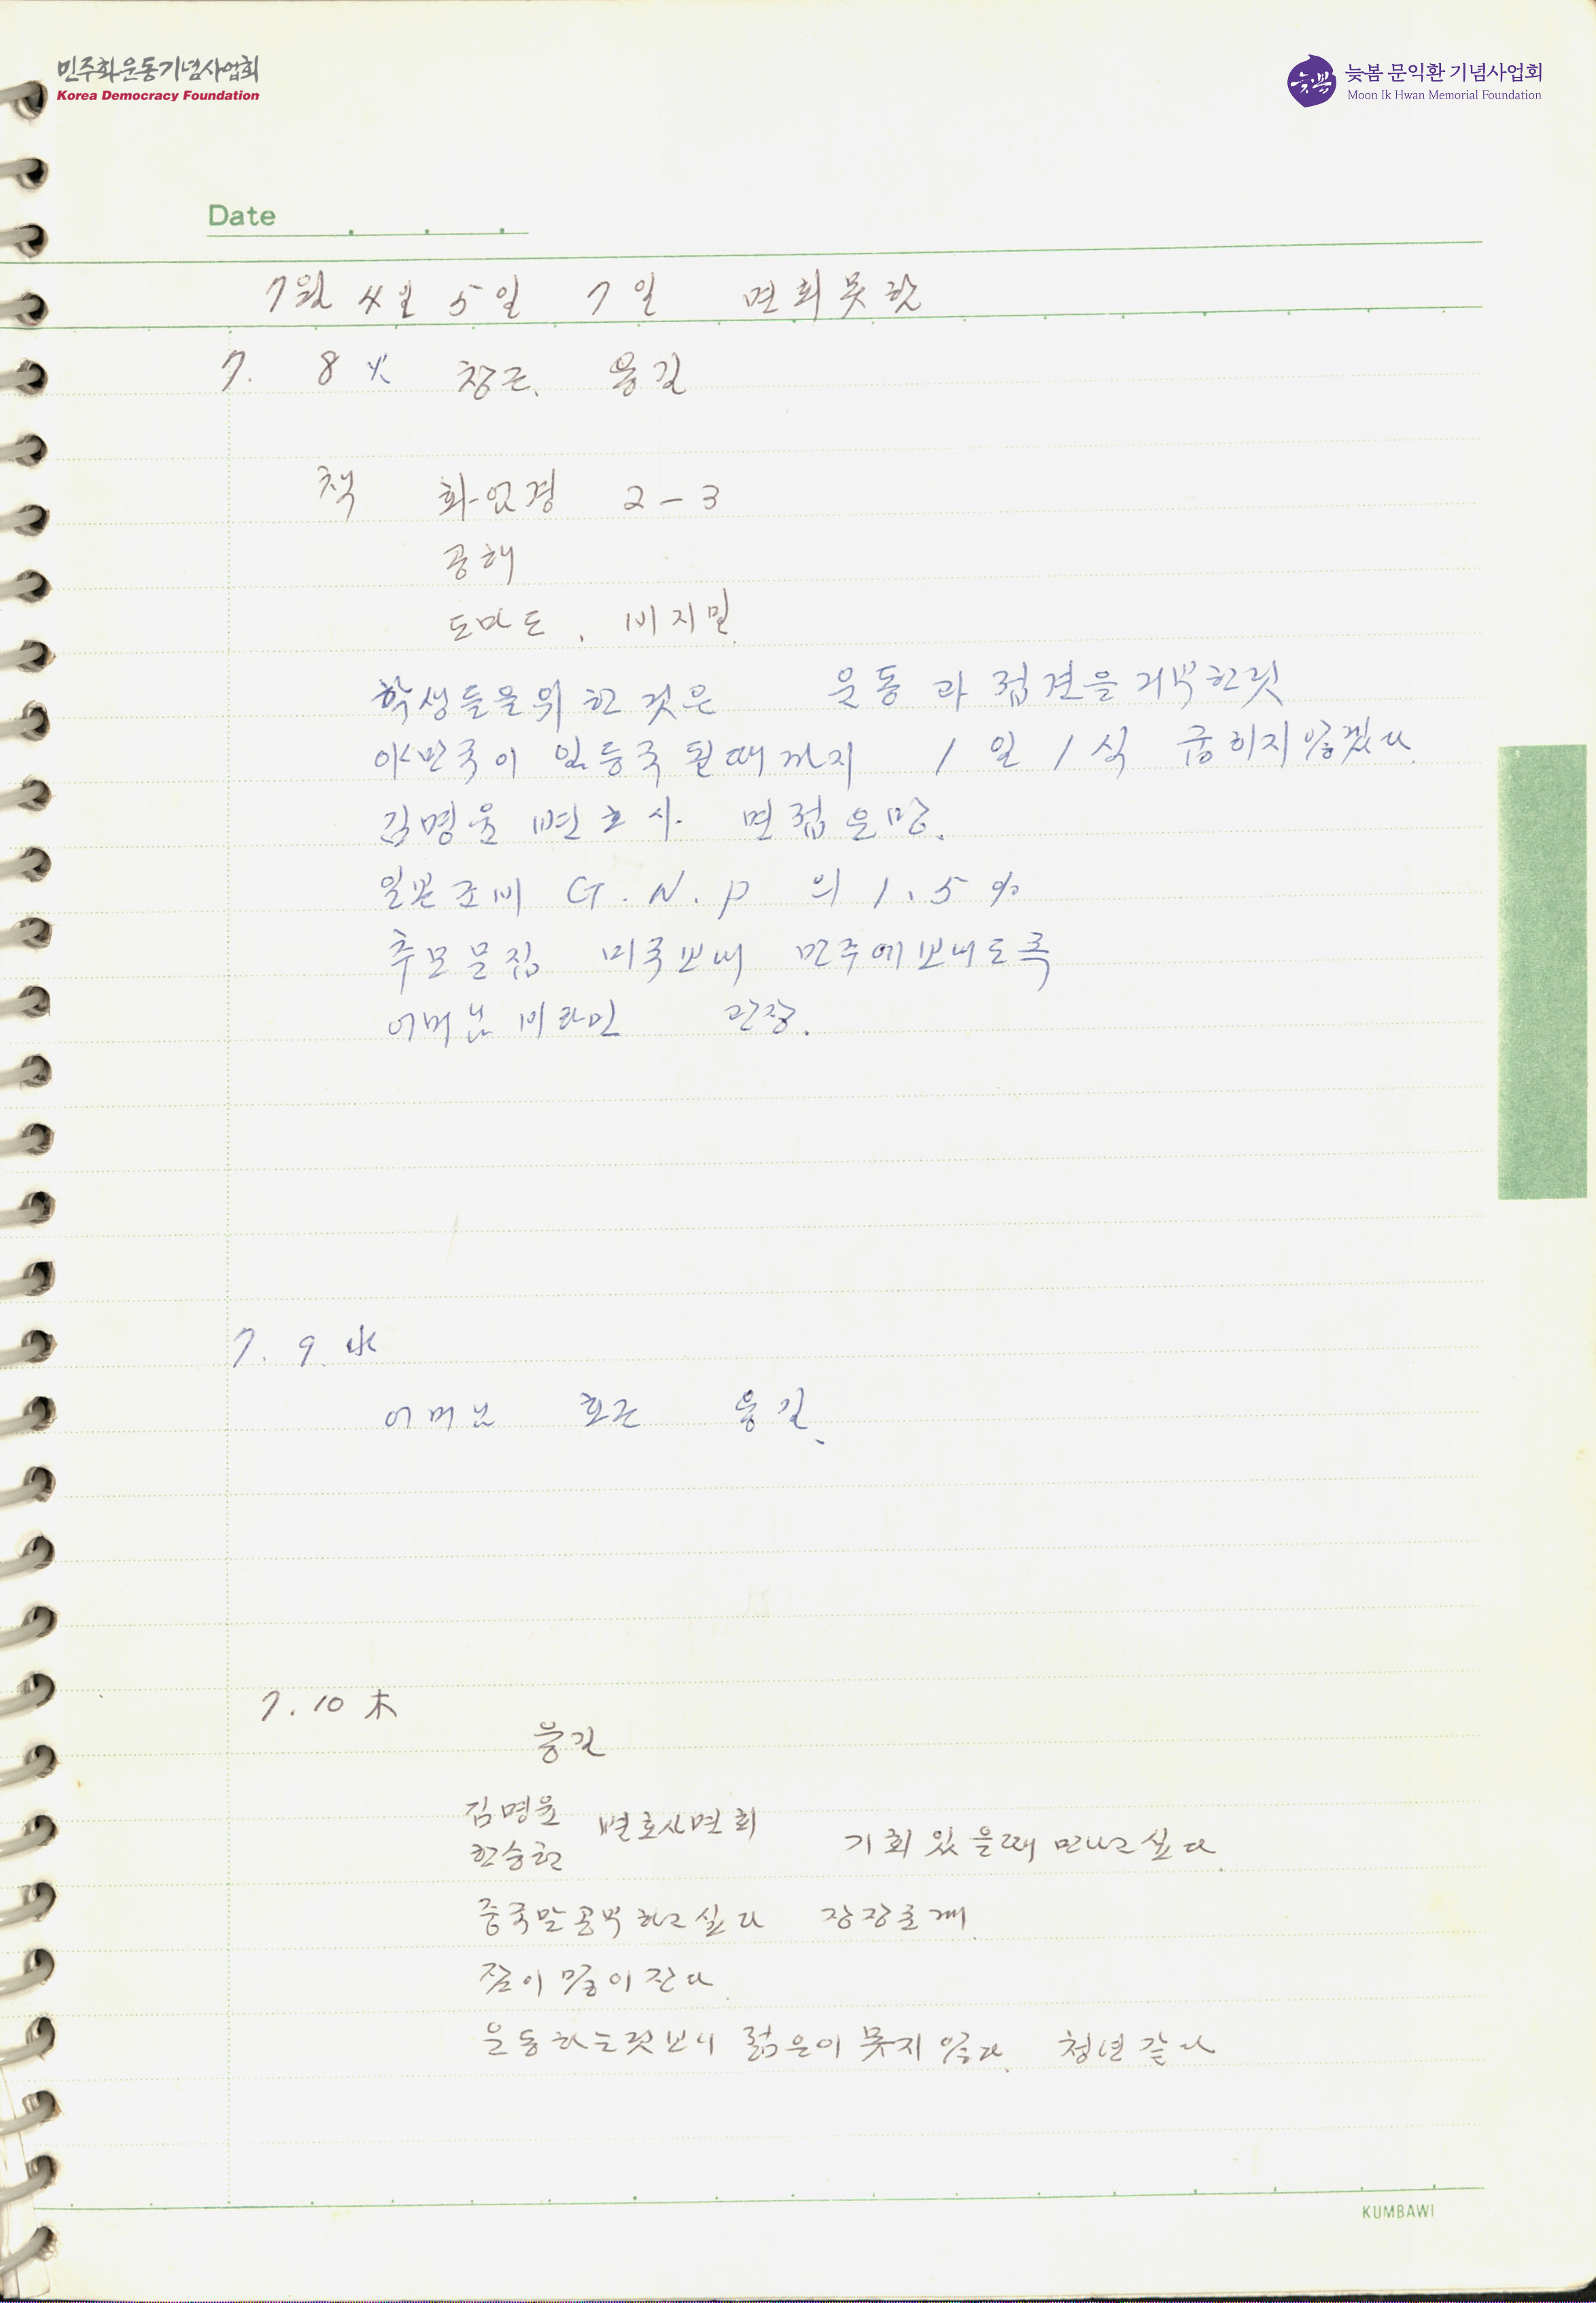 민주화운동기념사업회
Korea Democracy Foundation
늦봄 문익환 기념사업회
Moon Ik Hwan Memorial Foundation
Date
7월 4일 5일 7일 면회못함
7. 8 火 창근, 용길
책 화엄경 2-3
공해
도마도, 비지밀
학생들을위한 것은 운동과 접견을 거부한것
이 일등국 될때까지 1일 1식 굽히지않겠다.
김명윤 변호사 면접은망.
일본 G.N.P 의 1.5%
추모문집 미국보내 민주에보내도록
어머님 비타민
7. 9. 水
어머님 호근 용길
7. 10 木
용길
김명윤
한승헌 변호사면회 기회있을때 만나고싶다.
중국말공부하고싶다
잠이 많이 잔다.
운동하는것보니 젊은이 못지않다. 청년같다
KUMBAWI